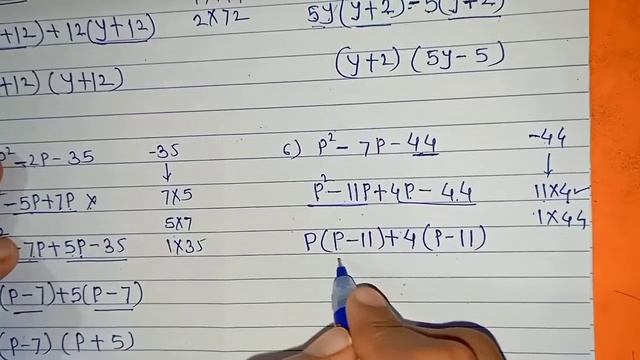 +12)+12(y+12) 2×72
+12)(y+12)
P²-2P-35 -35
-5P+7P × 7×5
5×7
-7P+5P-35 1×35
(P-7)+5(P-7)
(P-7)(P+5)
5y(y+2)-5(y+2)
(y+2)(5y-5)
6) P²-7P-44 -44
P²-11P+4P-44 11×4✓
1×44
P(P-11)+4(P-11)